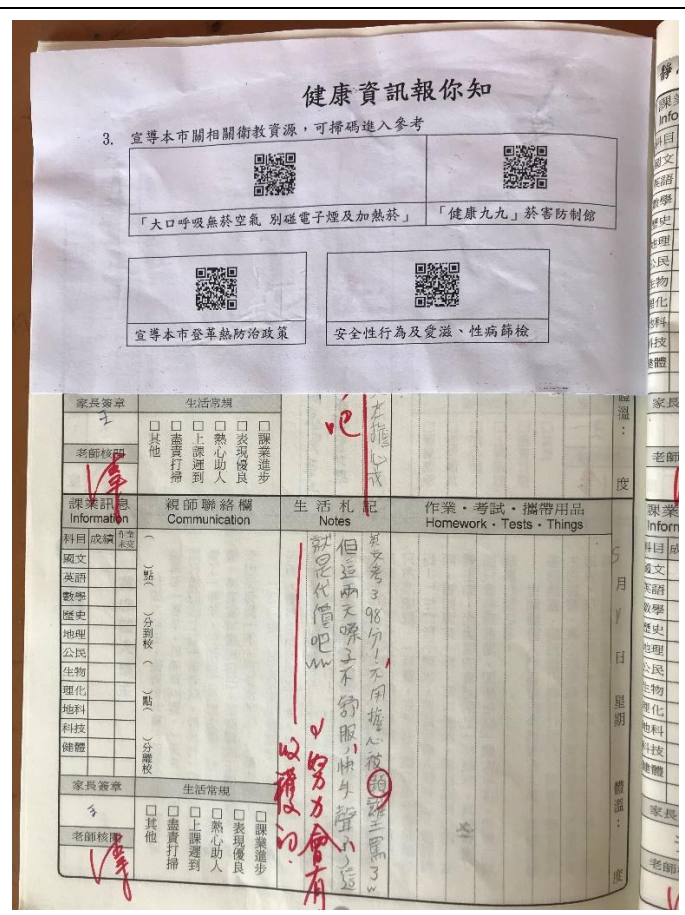 健康資訊報你知
3. 宣導本市關相關衛教資源，可掃碼進入參考
「大口呼吸無菸空氣 別碰電子煙及加熱菸」
「健康九九」菸害防制館
宣導本市登革熱防治政策
安全性行為及愛滋、性病篩檢
家長簽章
王
老師核閱
生活常規
□課業進步
□表現優良
□熱心助人
□上課遲到
□盡責打掃
□其他
吧
體溫：
度
課業訊息
Information
親師聯絡欄
Communication
生活札記
Notes
作業・考試・攜帶用品
Homework・Tests・Things
科目 成績 作業未交
國文
英語
數學
歷史
地理
公民
生物
理化
地科
科技
健體
( )點( )分到校
( )點( )分離校
5月 日 星期
體溫：
度
英文考了98分！不用擔心被 罵了w
但這兩天喉子不舒服，快失聲了，這
就是代價吧
努力會有
收穫的.
家長簽章
王
老師核閱
生活常規
□課業進步
□表現優良
□熱心助人
□上課遲到
□盡責打掃
□其他